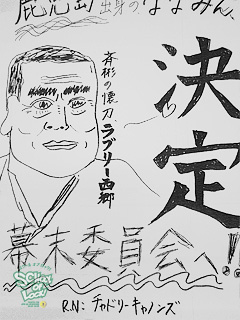 鹿児島出身のななみん、
斉彬の懐刀、ラブリー西郷
決定!!
幕末委員会へ
SCHOOL OF LOCK!
R.N: チャドリーキャノンズ